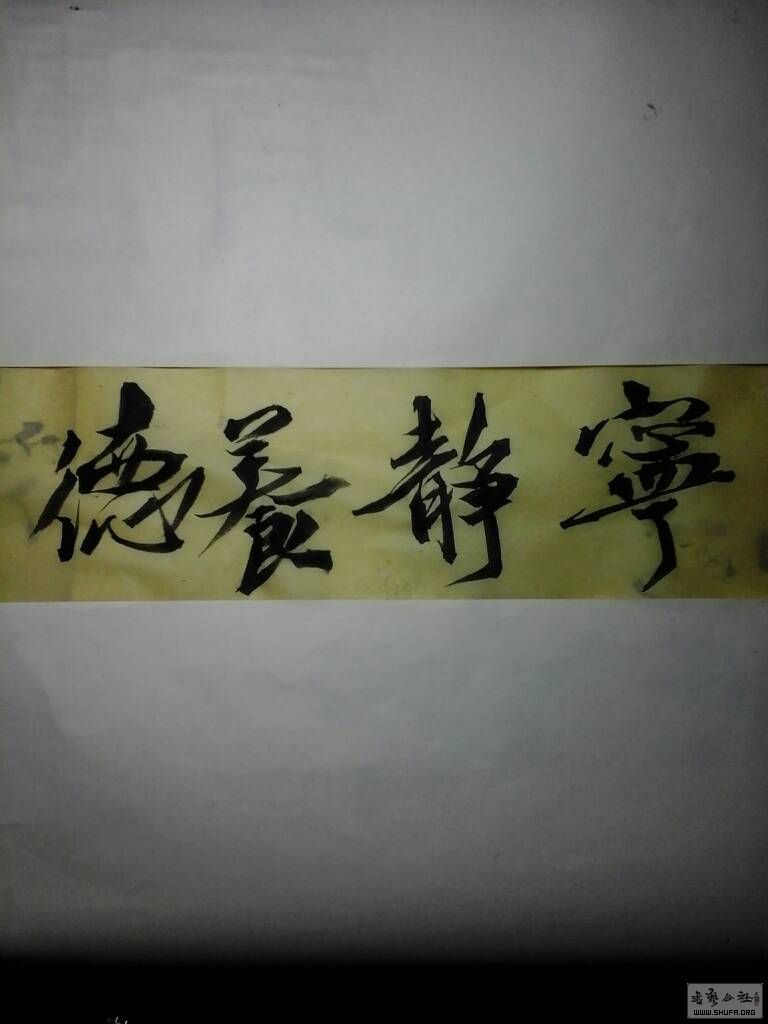 寧靜養德
書藝公社
WWW.SHUFA.ORG